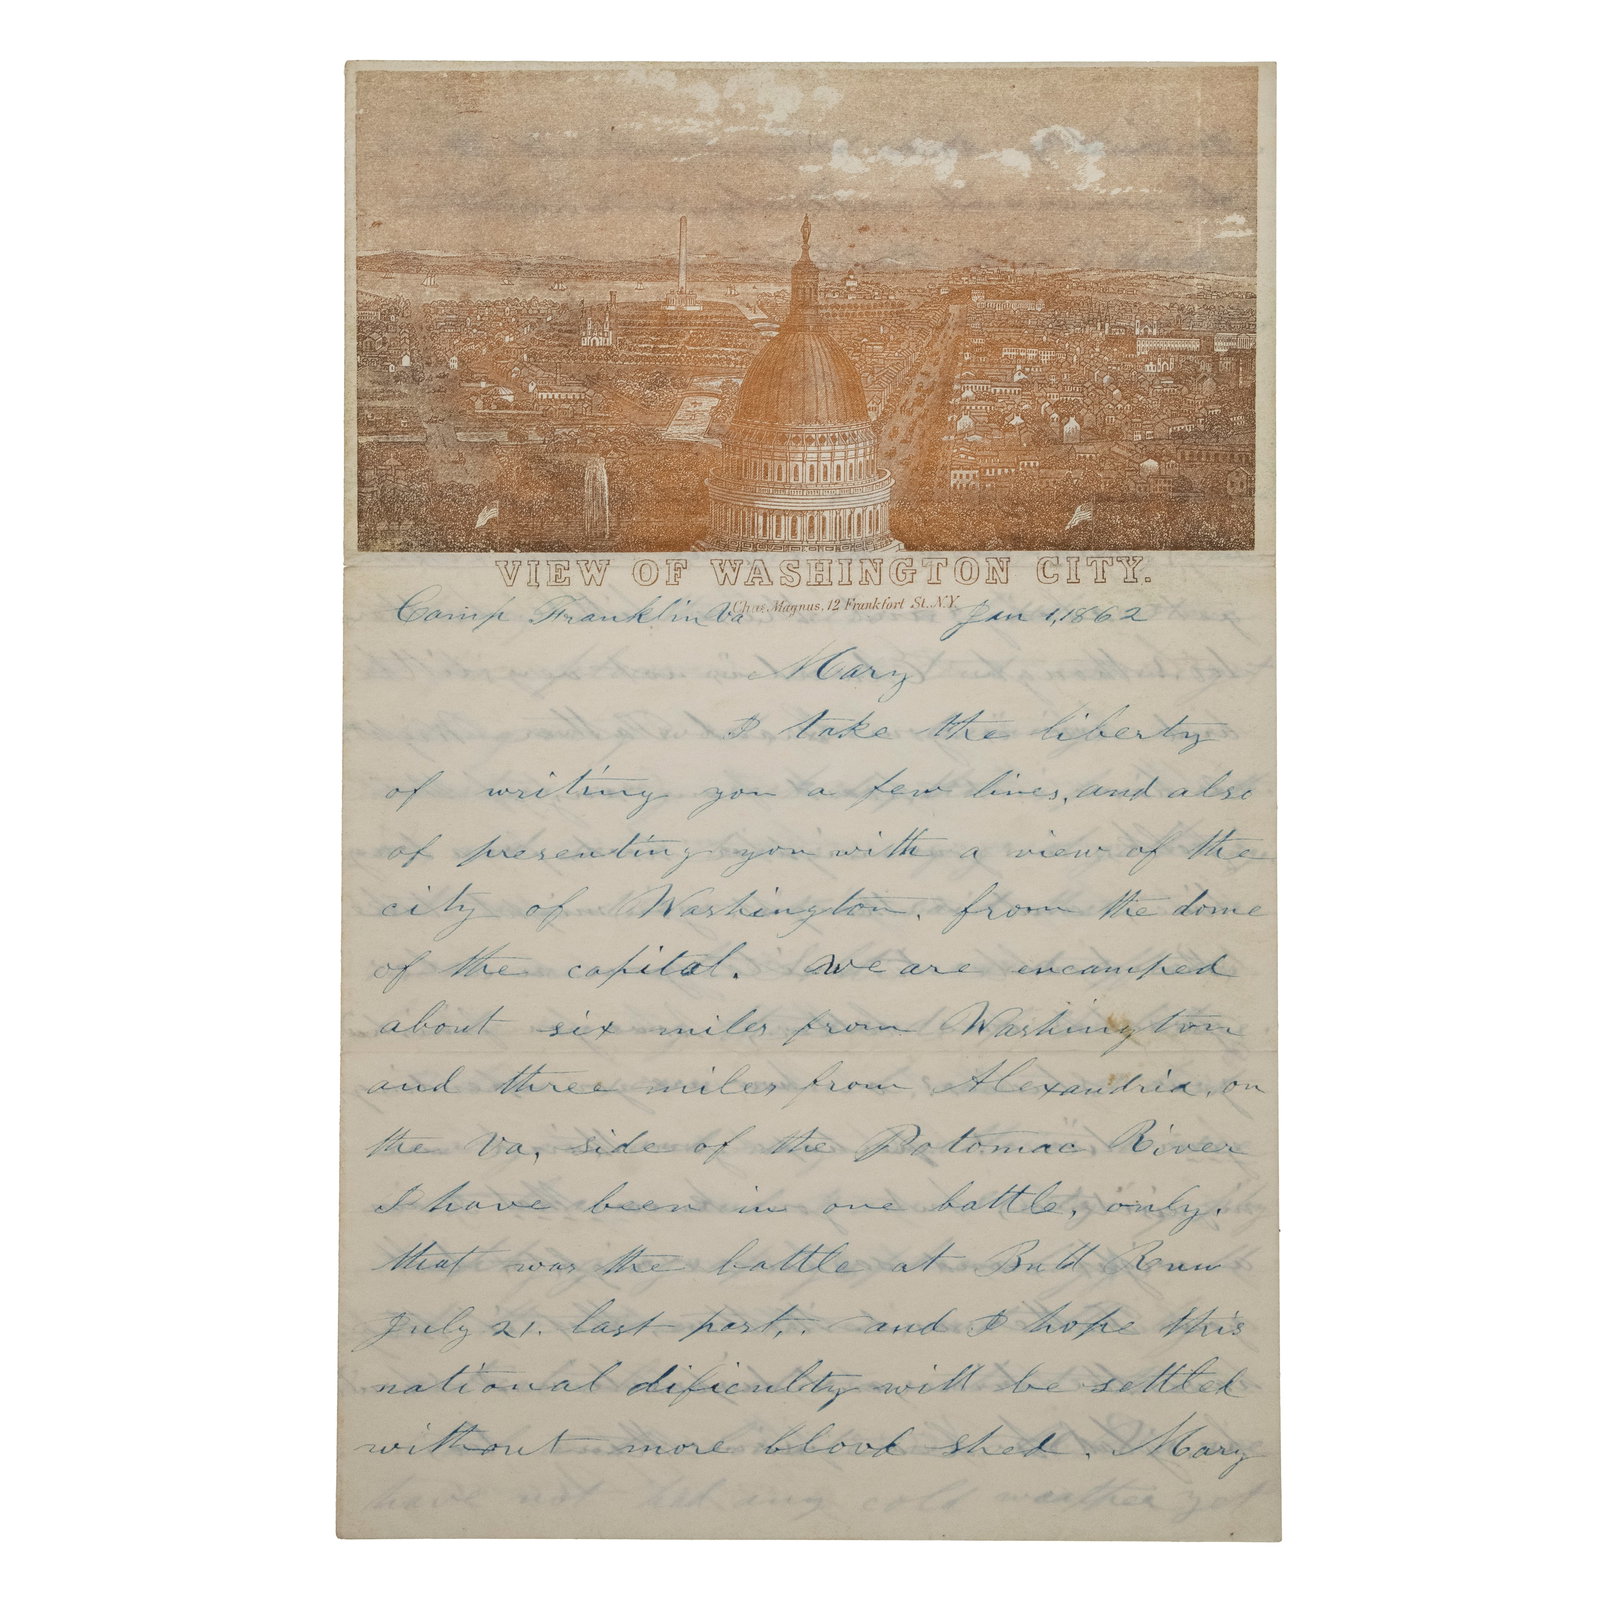 VIEW OF WASHINGTON CITY.
Chas. Magnus, 12 Frankfort St. N.Y.
Camp Franklin Va Jan 1, 1862
Mary
I take the liberty
of writing you a few lines, and also
of presenting you with a view of the
city of Washington, from the dome
of the capital. We are encamped
about six miles from Washington
and three miles from Alexandria, on
the Va, side of the Potomac River
I have been in one battle, only.
that was the battle at Bull Runn
July 21. last past,. and I hope this
national dificulty will be settled
without more blood shed. Mary
have not had any cold weather yet